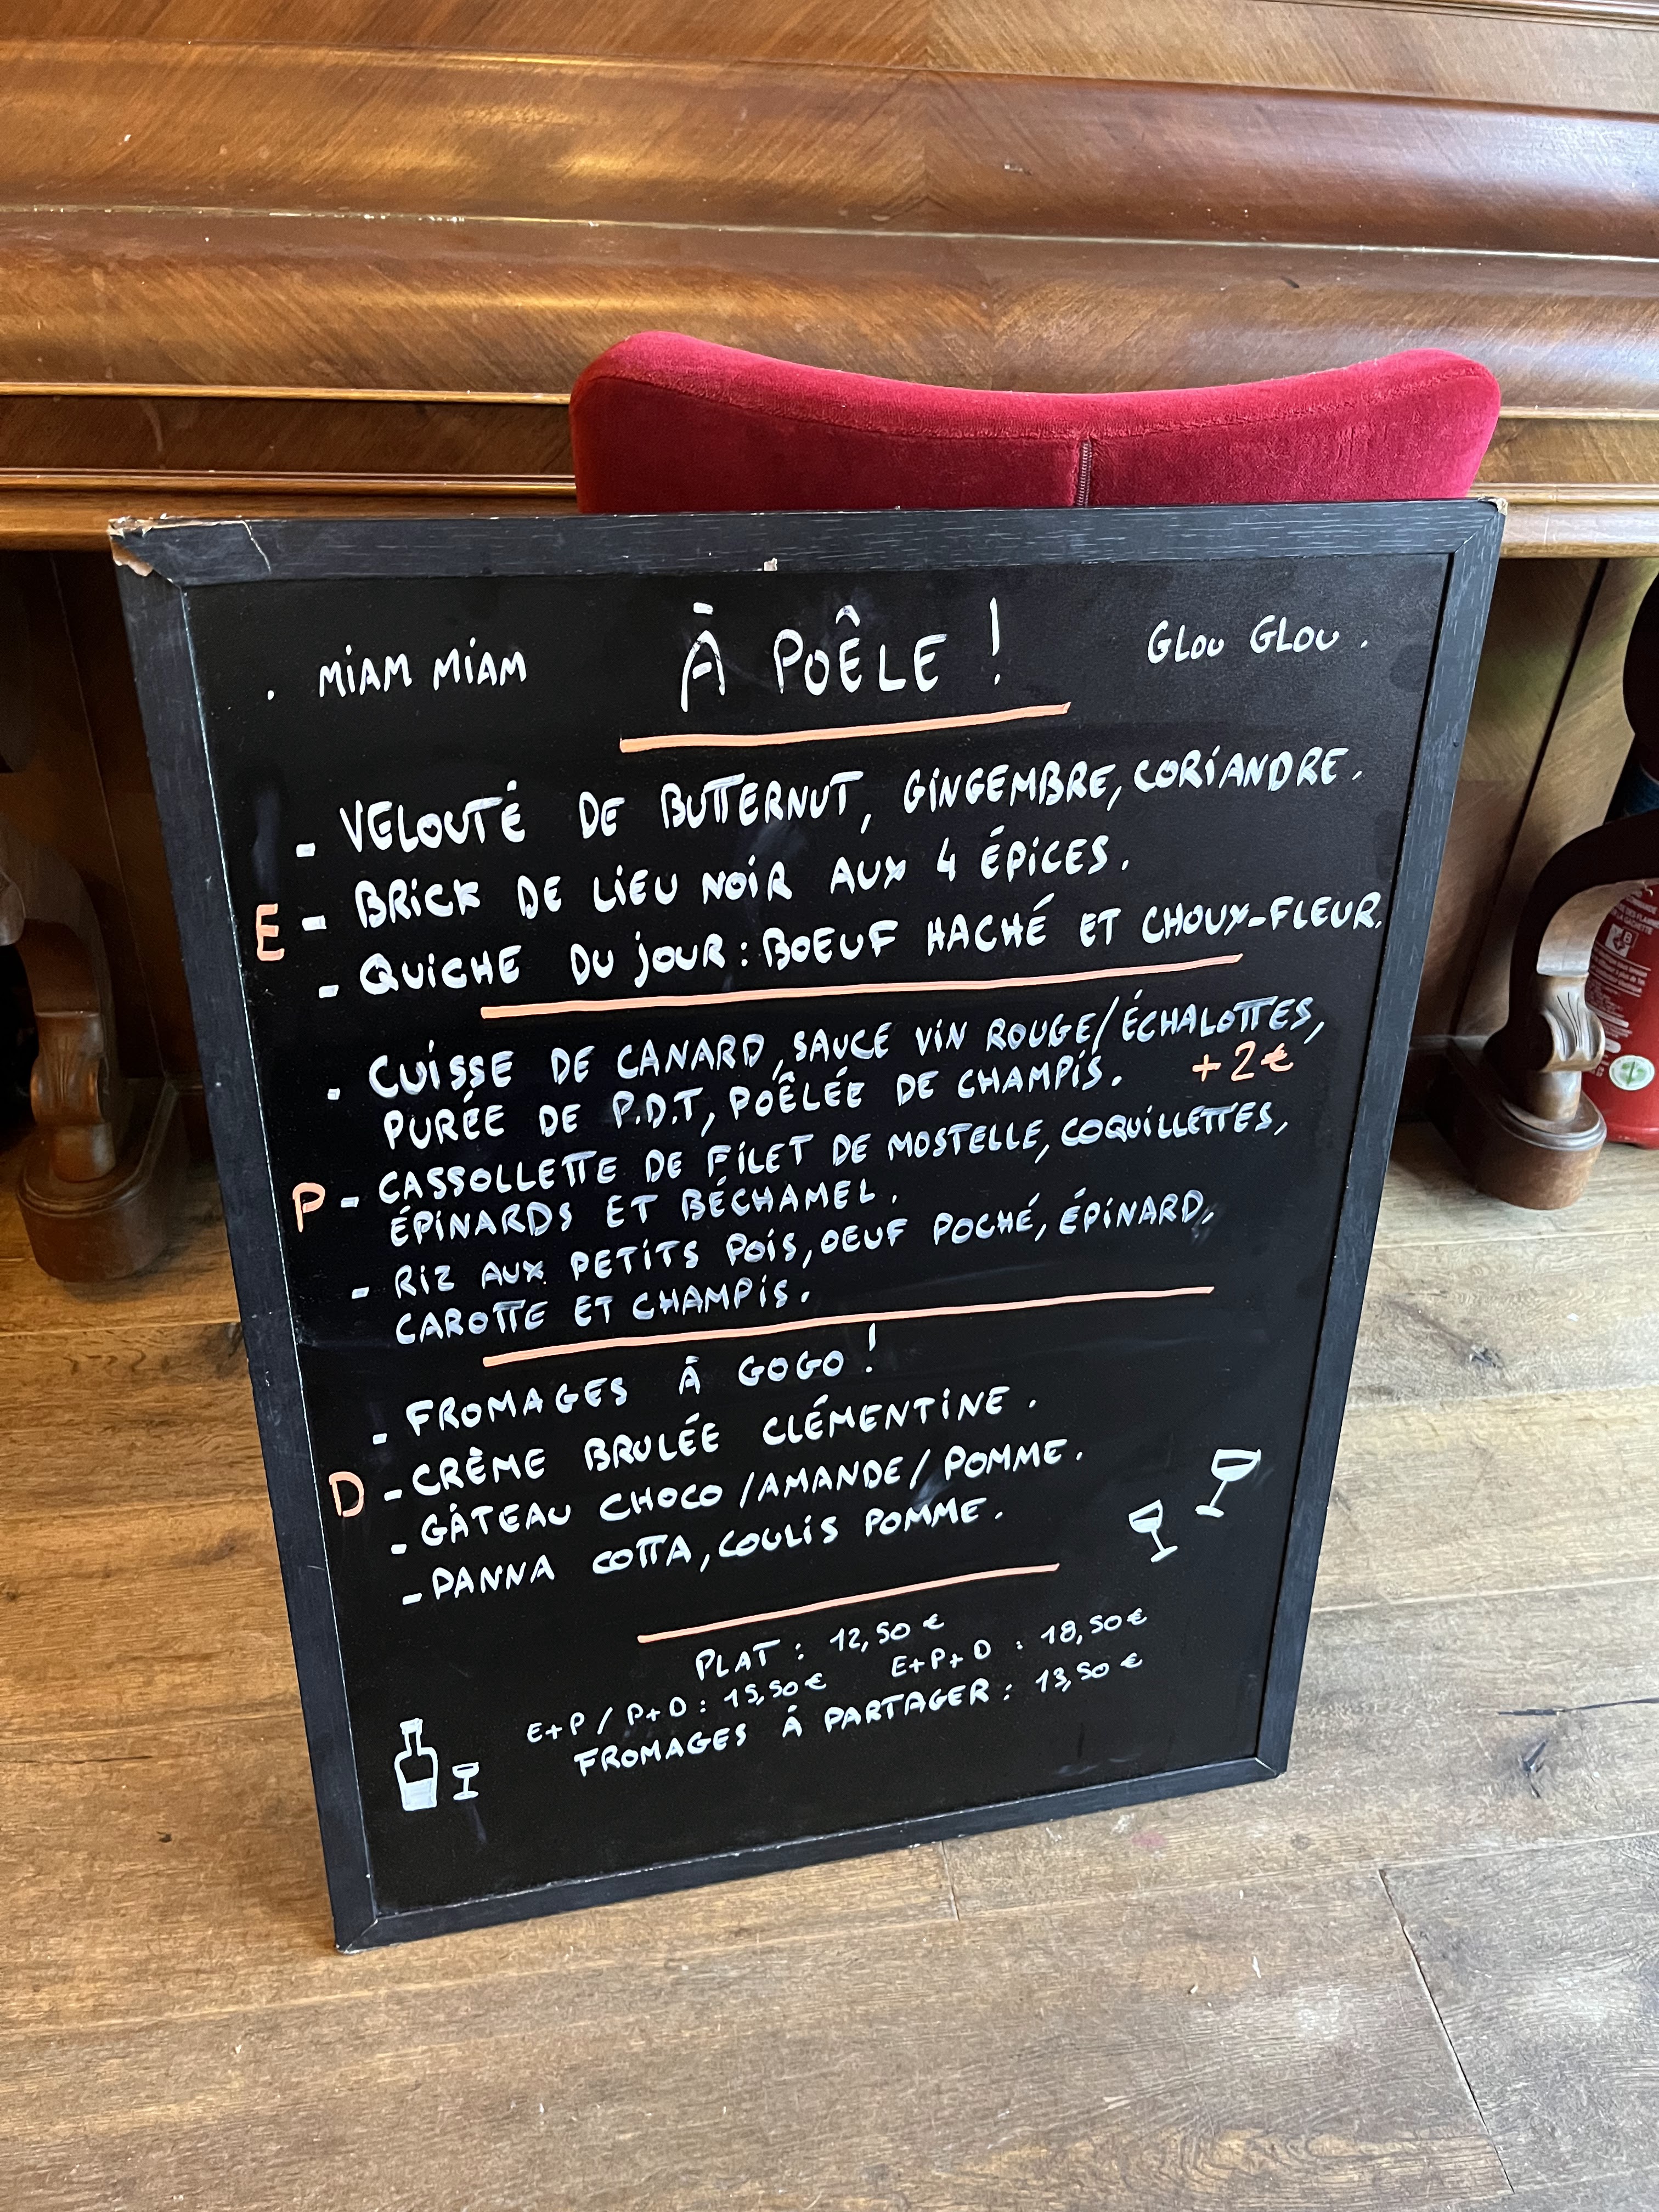 . MIAM MIAM
À POÊLE !
GLOU GLOU .
- VELOUTÉ DE BUTTERNUT, GINGEMBRE, CORIANDRE.
E - BRICK DE LIEU NOIR AUX 4 ÉPICES.
- QUICHE DU JOUR : BOEUF HACHÉ ET CHOUX-FLEUR.
- CUISSE DE CANARD, SAUCE VIN ROUGE/ÉCHALOTTES,
PURÉE DE P.D.T, POÊLÉE DE CHAMPIS. +2€
P - CASSOLLETTE DE FILET DE MOSTELLE, COQUILLETTES,
ÉPINARDS ET BÉCHAMEL.
- RIZ AUX PETITS POIS, OEUF POCHÉ, ÉPINARD,
CAROTTE ET CHAMPIS.
- FROMAGES À GOGO !
D - CRÈME BRULÉE CLÉMENTINE.
- GÂTEAU CHOCO/AMANDE/POMME.
- PANNA COTTA, COULIS POMME.
PLAT : 12,50 €
E+P / P+D : 15,50 € E+P+D : 18,50 €
FROMAGES À PARTAGER : 13,50 €